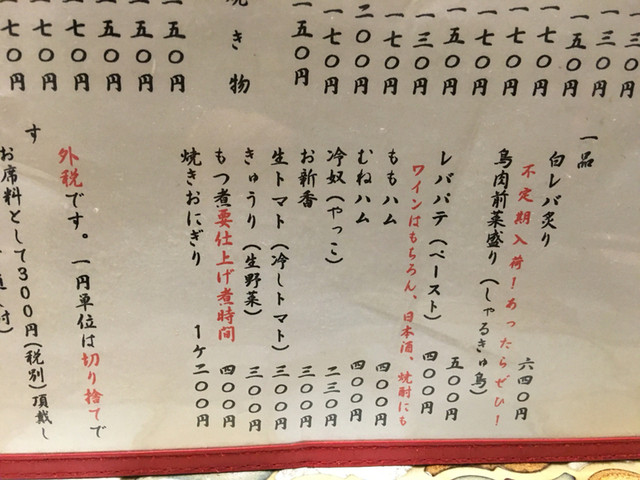 一三〇円
一三〇円
一五〇円
一七〇円
一七〇円
一七〇円
一五〇円
一三〇円
一七〇円
二〇〇円
一七〇円
一五〇円
き物
五〇円
五〇円
五〇円
七〇円
五〇円
七〇円
一品
白レバ炙り 六四〇円
不定期入荷!あったらぜひ!
鳥肉前菜盛り(しゃるきゅ鳥) 五〇〇円
レバパテ(ペースト) 四〇〇円
ワインはもちろん、日本酒、焼酎にも
ももハム 四〇〇円
むねハム 四〇〇円
冷奴(やっこ) 二三〇円
お新香 三〇〇円
生トマト(冷しトマト) 三〇〇円
きゅうり(生野菜) 三〇〇円
もつ煮要仕上げ煮時間 四〇〇円
焼きおにぎり 1ケ二〇〇円
外税です。一円単位は切り捨てで
す
お席料として300円(税別)頂戴し